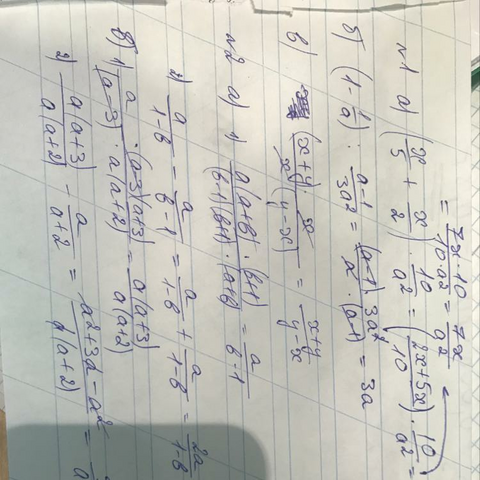 = 7x·10/10·a² = 7x/a²
№1 а) (x/5 + x/2) · 10/a² = (2x+5x)/10 · 10/a² =
б) (1 - 1/a) : a-1/3a² = (a-1)·3a²/a·(a-1) = 3a
в) (x+y)·x/x·(y-x) = x+y/y-x
№2 а) 1) a(a+b)·(b+1)/(b+1)(b-1)·(a+b) = a/b-1
2) a/1-b - a/b-1 = a/1-b + a/1-b = 2a/1-b
б) 1) a/(a-3) · (a-3)(a+3)/a(a+2) = a(a+3)/a(a+2)
2) a(a+3)/a(a+2) - a/a+2 = a²+3a-a²/a(a+2) =